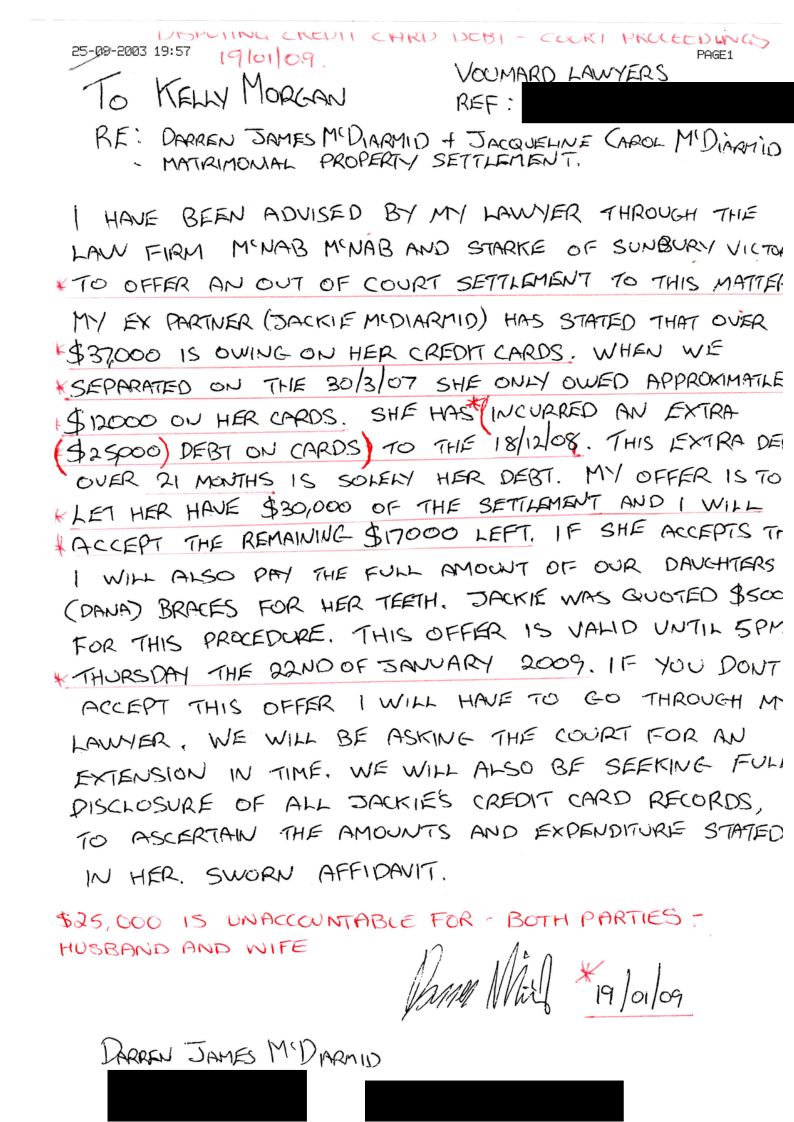 DISPUTING CREDIT CARD DEBT - COURT PROCEEDINGS
25-08-2003 19:57
19/01/09.
PAGE1
VOUMARD LAWYERS
TO KELLY MORGAN
REF :
RE: DARREN JAMES McDIARMID + JACQUELINE CAROL McDIARMID
- MATRIMONIAL PROPERTY SETTLEMENT.
I HAVE BEEN ADVISED BY MY LAWYER THROUGH THE
LAW FIRM McNAB McNAB AND STARKE OF SUNBURY VICTO
* TO OFFER AN OUT OF COURT SETTLEMENT TO THIS MATTER
MY EX PARTNER (JACKIE McDIARMID) HAS STATED THAT OVER
* $37,000 IS OWING ON HER CREDIT CARDS. WHEN WE
* SEPARATED ON THE 30/3/07 SHE ONLY OWED APPROXIMATLE
* $12000 ON HER CARDS. SHE HAS *(INCURRED AN EXTRA
($25,000) DEBT ON CARDS) TO THE 18/12/08. THIS EXTRA DE
OVER 21 MONTHS IS SOLELY HER DEBT. MY OFFER IS TO
* LET HER HAVE $30,000 OF THE SETTLEMENT AND I WILL
* ACCEPT THE REMAINING $17000 LEFT. IF SHE ACCEPTS
I WILL ALSO PAY THE FULL AMOUNT OF OUR DAUGHTERS
(DANA) BRACES FOR HER TEETH. JACKIE WAS QUOTED $500
FOR THIS PROCEDURE. THIS OFFER IS VALID UNTIL 5PM
* THURSDAY THE 22ND OF JANUARY 2009. IF YOU DONT
ACCEPT THIS OFFER I WILL HAVE TO GO THROUGH M
LAWYER. WE WILL BE ASKING THE COURT FOR AN
EXTENSION IN TIME. WE WILL ALSO BE SEEKING FULL
DISCLOSURE OF ALL JACKIE'S CREDIT CARD RECORDS,
TO ASCERTAIN THE AMOUNTS AND EXPENDITURE STATED
IN HER. SWORN AFFIDAVIT.
$25,000 IS UNACCOUNTABLE FOR - BOTH PARTIES -
HUSBAND AND WIFE
* 19/01/09
DARREN JAMES McDIARMID